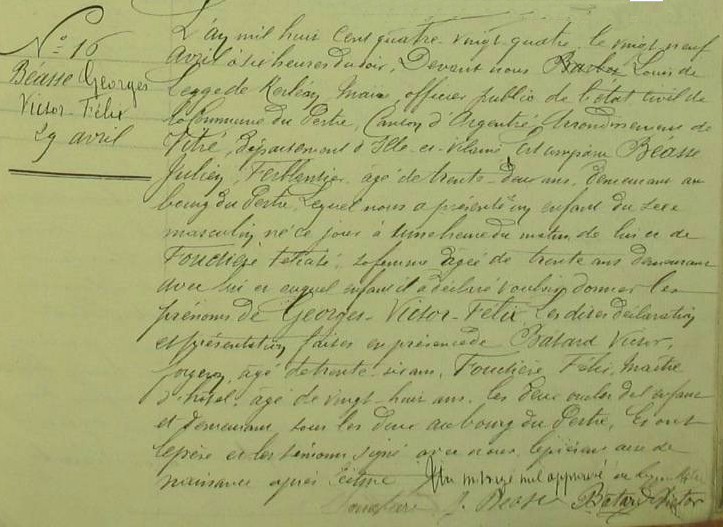 N° 16
Béasse Georges
Victor-Félix
29 avril
L'an mil huit cent quatre-vingt-quatre, le vingt-neuf
avril à six heures du soir, Devant nous Louis de
Legge de Kerléan, Maire officier public de l'état civil de
la commune du Pertre, Canton d'Argentré, Arrondissement de
Vitré, Département d'Ille-et-Vilaine, est comparu Béasse
Julien, Ferblantier, âgé de trente-deux ans, demeurant au
bourg du Pertre, Lequel nous a présenté un enfant du sexe
masculin né ce jour à une heure du matin de lui et de
Fouchère sa femme âgée de trente ans demeurant
avec lui et auquel enfant il a déclaré vouloir donner les
prénoms de Georges-Victor-Félix. Les dites déclaration
et présentation faites en présence de Bâtard Victor,
âgé de trente-six ans, Fouchère Félix, Maître
d'hôtel, âgé de vingt-huit ans, les deux oncles del'enfant
et demeurant tous les deux au bourg du Pertre, Et ont
le père et les témoins signé avec nous, le présent acte de
naissance après lecture. Un mot rayé nul approuvé
J. Béasse Bâtard Victor